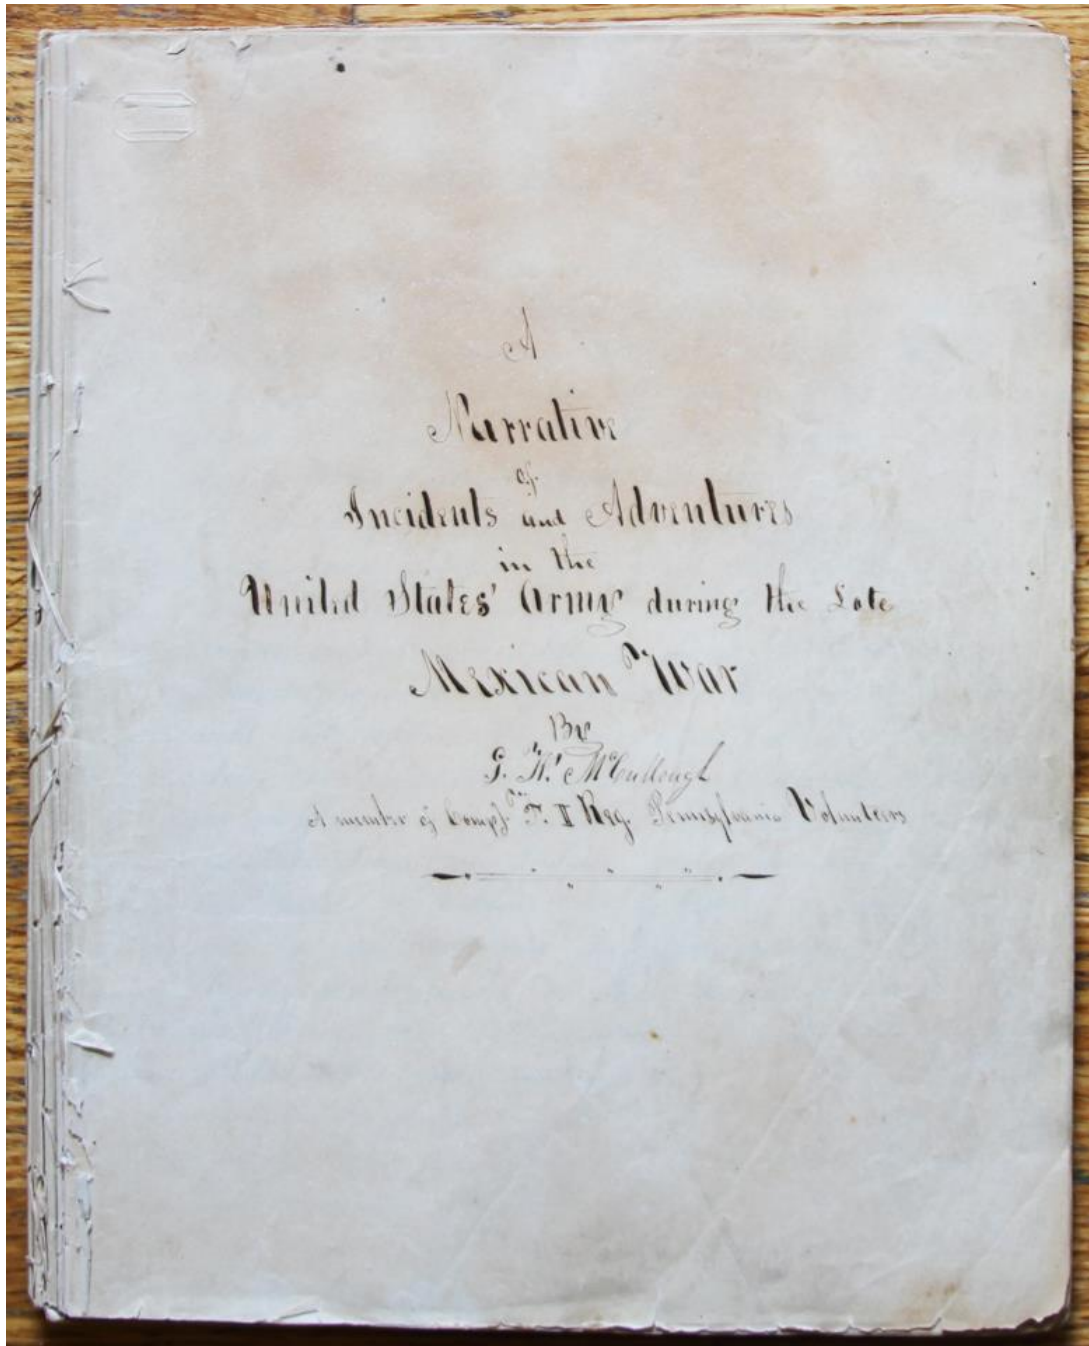 A
Narrative
of
Incidents and Adventures
in the
United States' Army during the Late
Mexican War
By
G. W. McCullough
A member of Comp. F. II Reg. Pennsylvania Volunteers